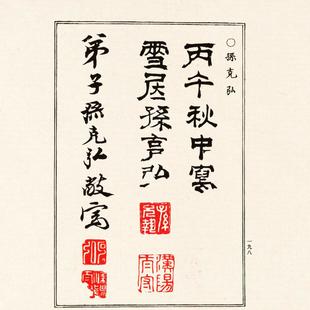 〇孫克弘
丙午秋中寫
雪居孫克弘
弟子孫克弘敬寫
漢陽太守
一九八